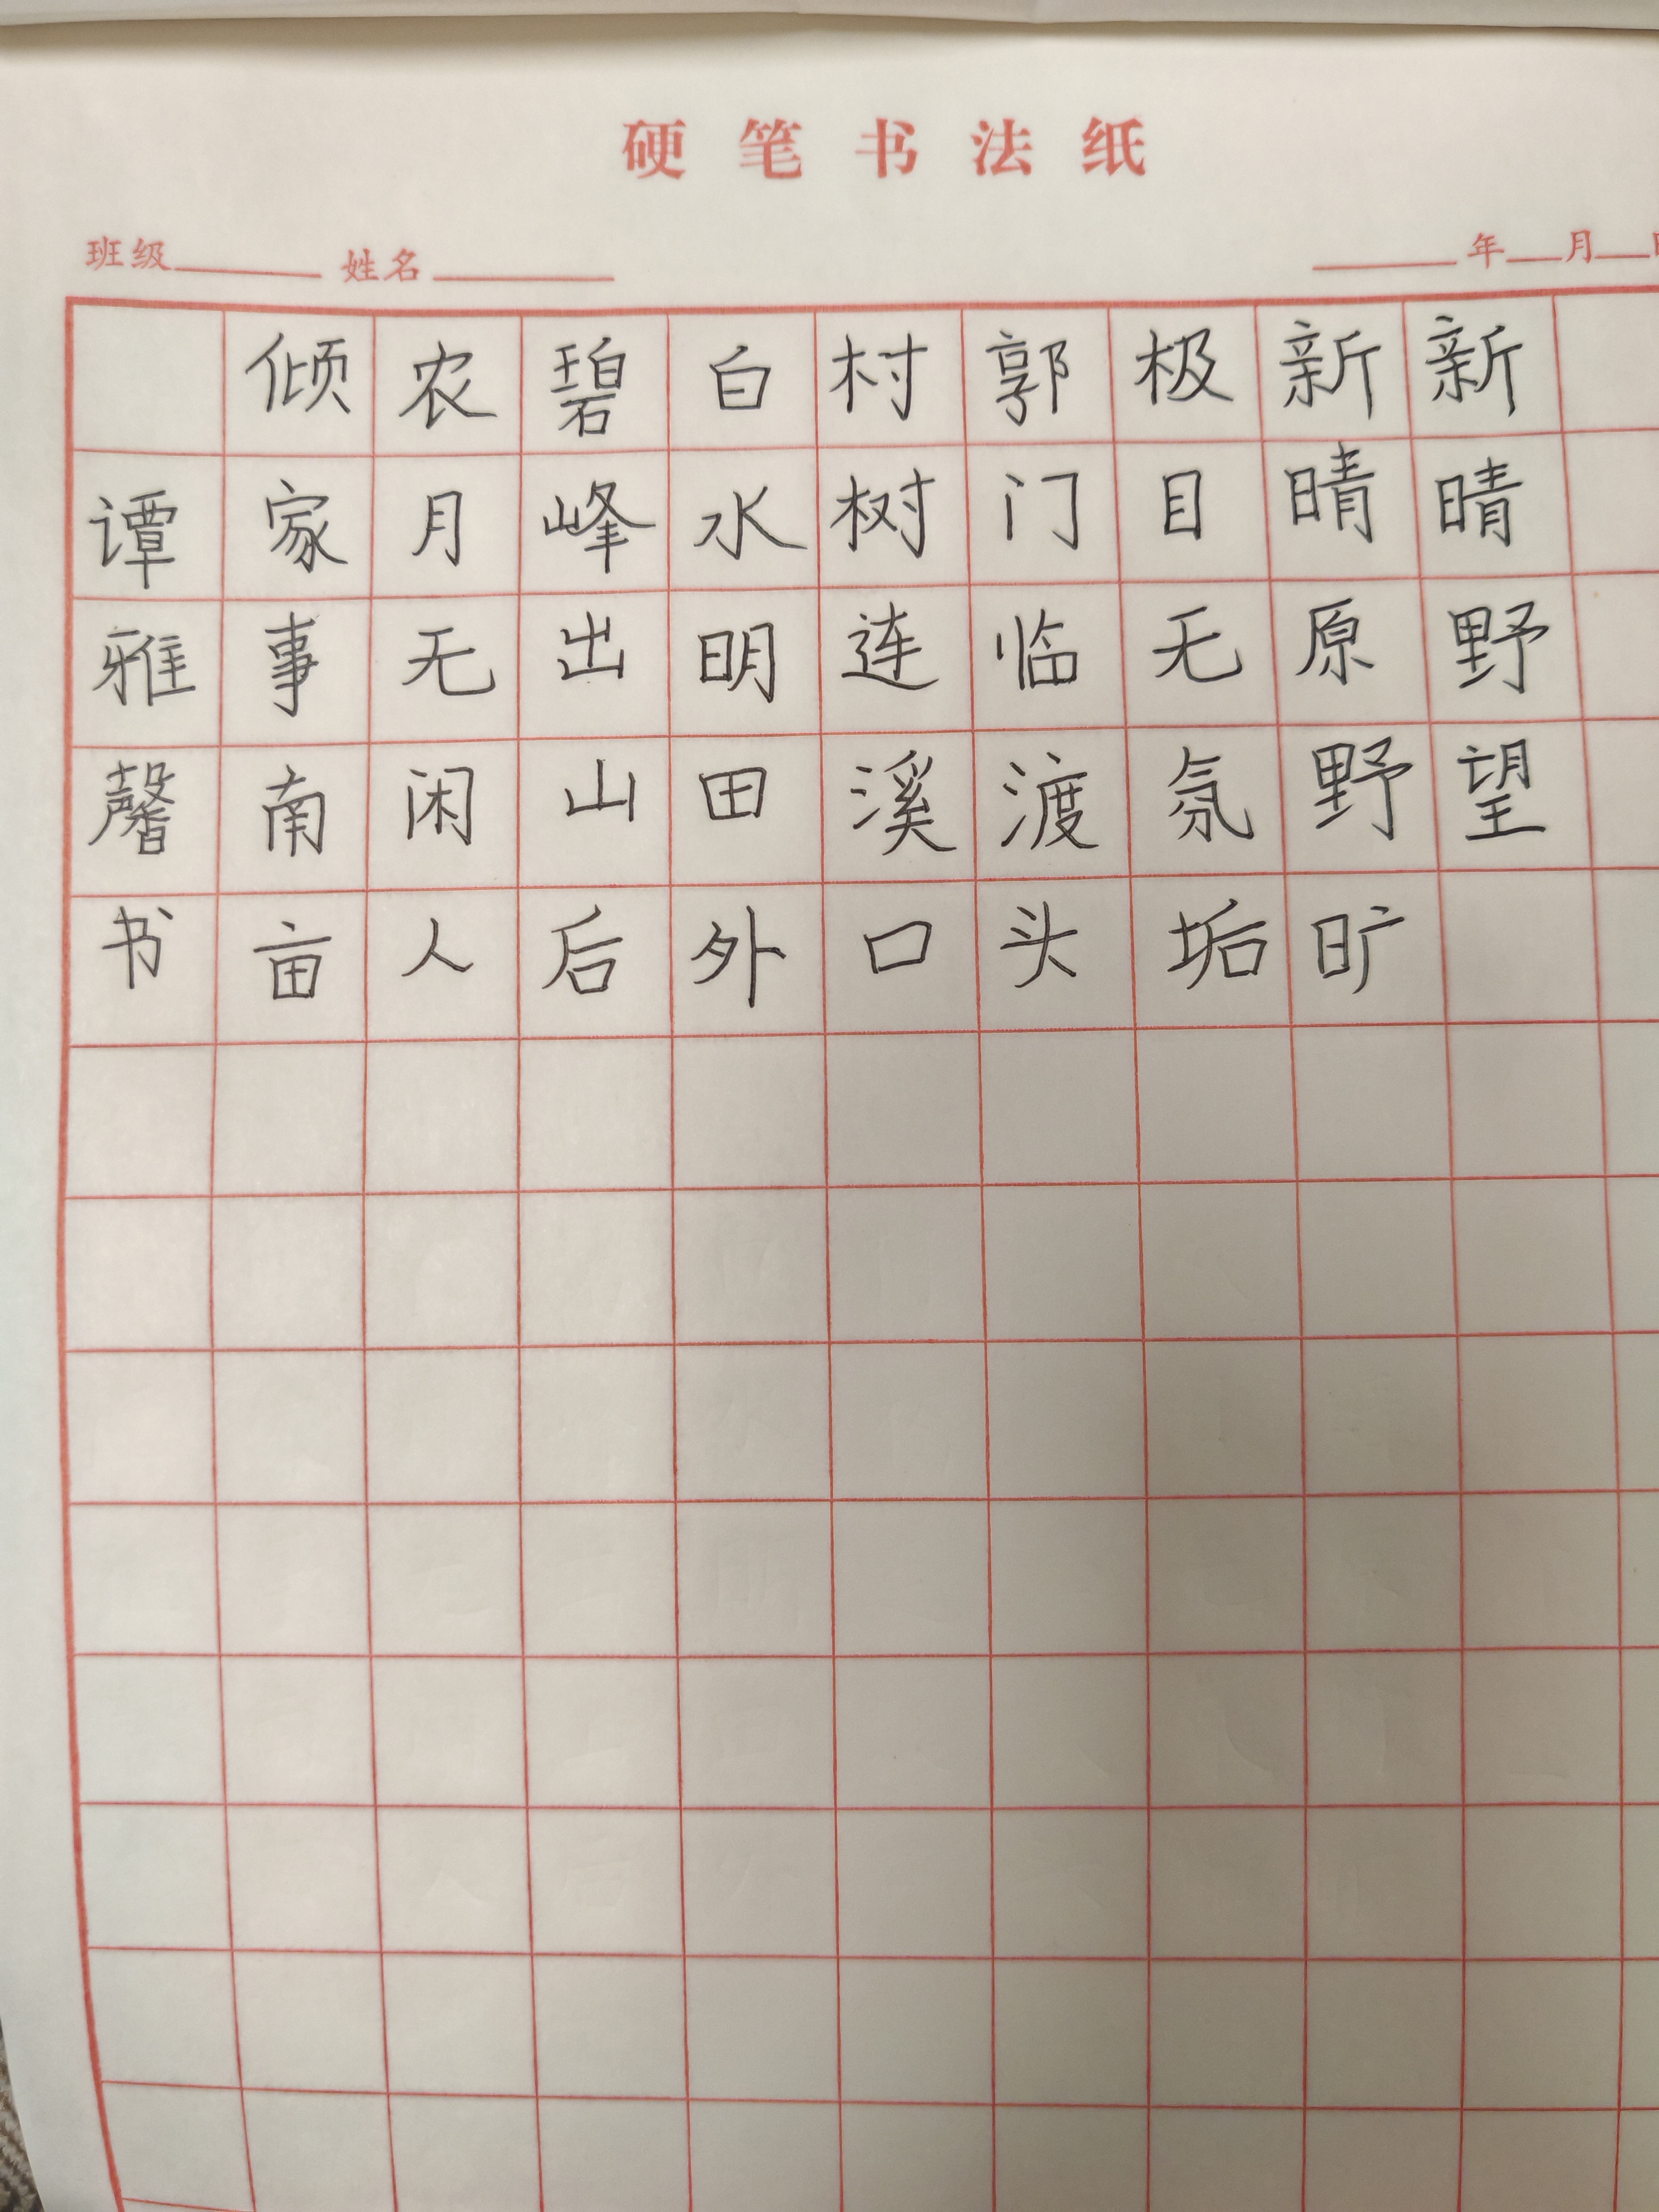 硬笔书法纸
班级 姓名 年 月
新晴野望
新晴原野旷
极目无氛垢
郭门临渡头
村树连溪口
白水明田外
碧峰出山后
农月无闲人
倾家事南亩
谭雅馨书